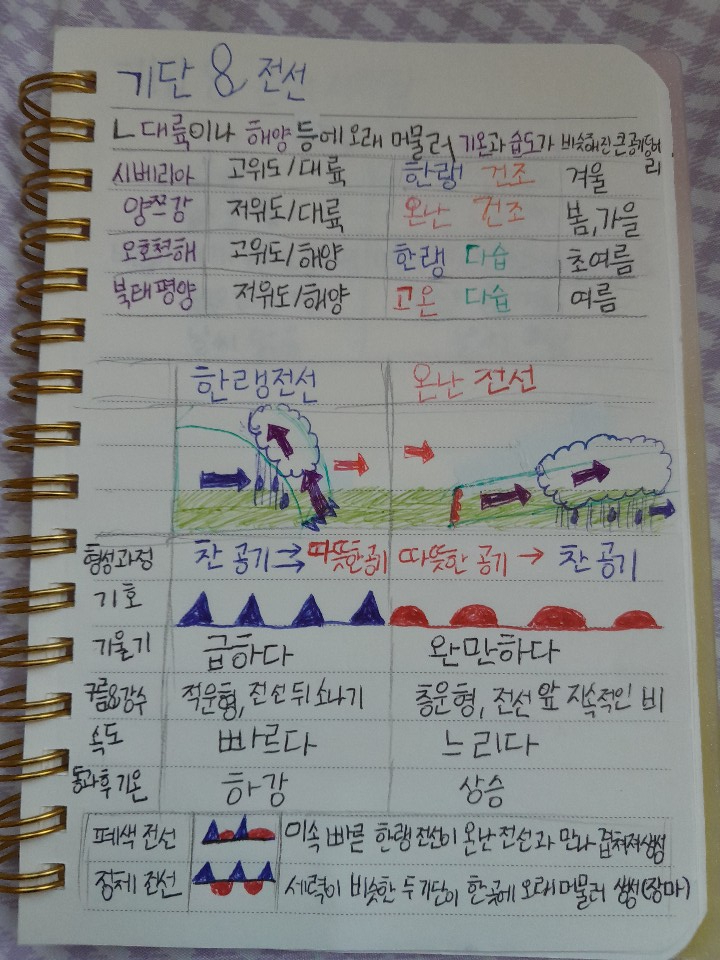 기단 & 전선
ㄴ 대륙이나 해양 등에 오래 머물러 기온과 습도가 비슷해진 큰 공기덩어리
시베리아 고위도/대륙 한랭 건조 겨울
양쯔강 저위도/대륙 온난 건조 봄,가을
오호츠크해 고위도/해양 한랭 다습 초여름
북태평양 저위도/해양 고온 다습 여름
한랭전선 온난 전선
형성과정 찬 공기 → 따뜻한공기 따뜻한 공기 → 찬 공기
기호
기울기 급하다 완만하다
구름&강수 적운형, 전선 뒤 소나기 층운형, 전선 앞 지속적인 비
속도 빠르다 느리다
통과 후 기온 하강 상승
폐색 전선 이속 빠른 한랭 전선이 온난 전선과 만나 겹쳐져 생성
정체 전선 세력이 비슷한 두 기단이 한곳에 오래 머물러 생성(장마)